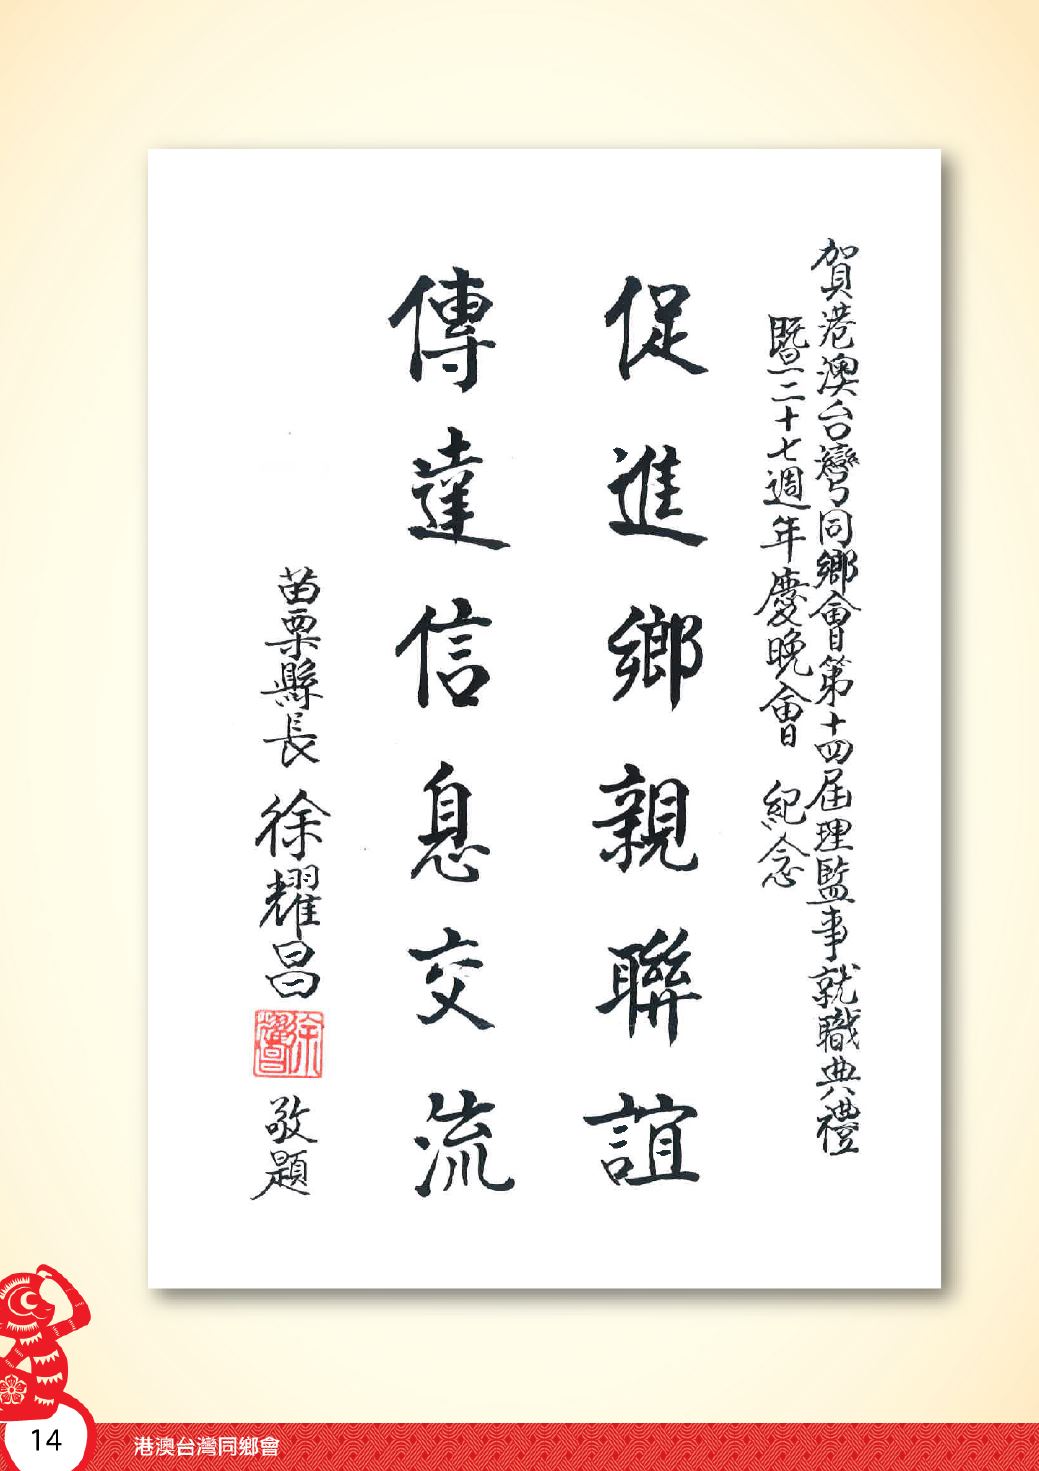 賀港澳台灣同鄉會第十四屆理監事就職典禮
暨二十七週年慶晚會 紀念
促進鄉親聯誼
傳達信息交流
苗栗縣長 徐耀昌
徐耀昌
敬題
14
港澳台灣同鄉會